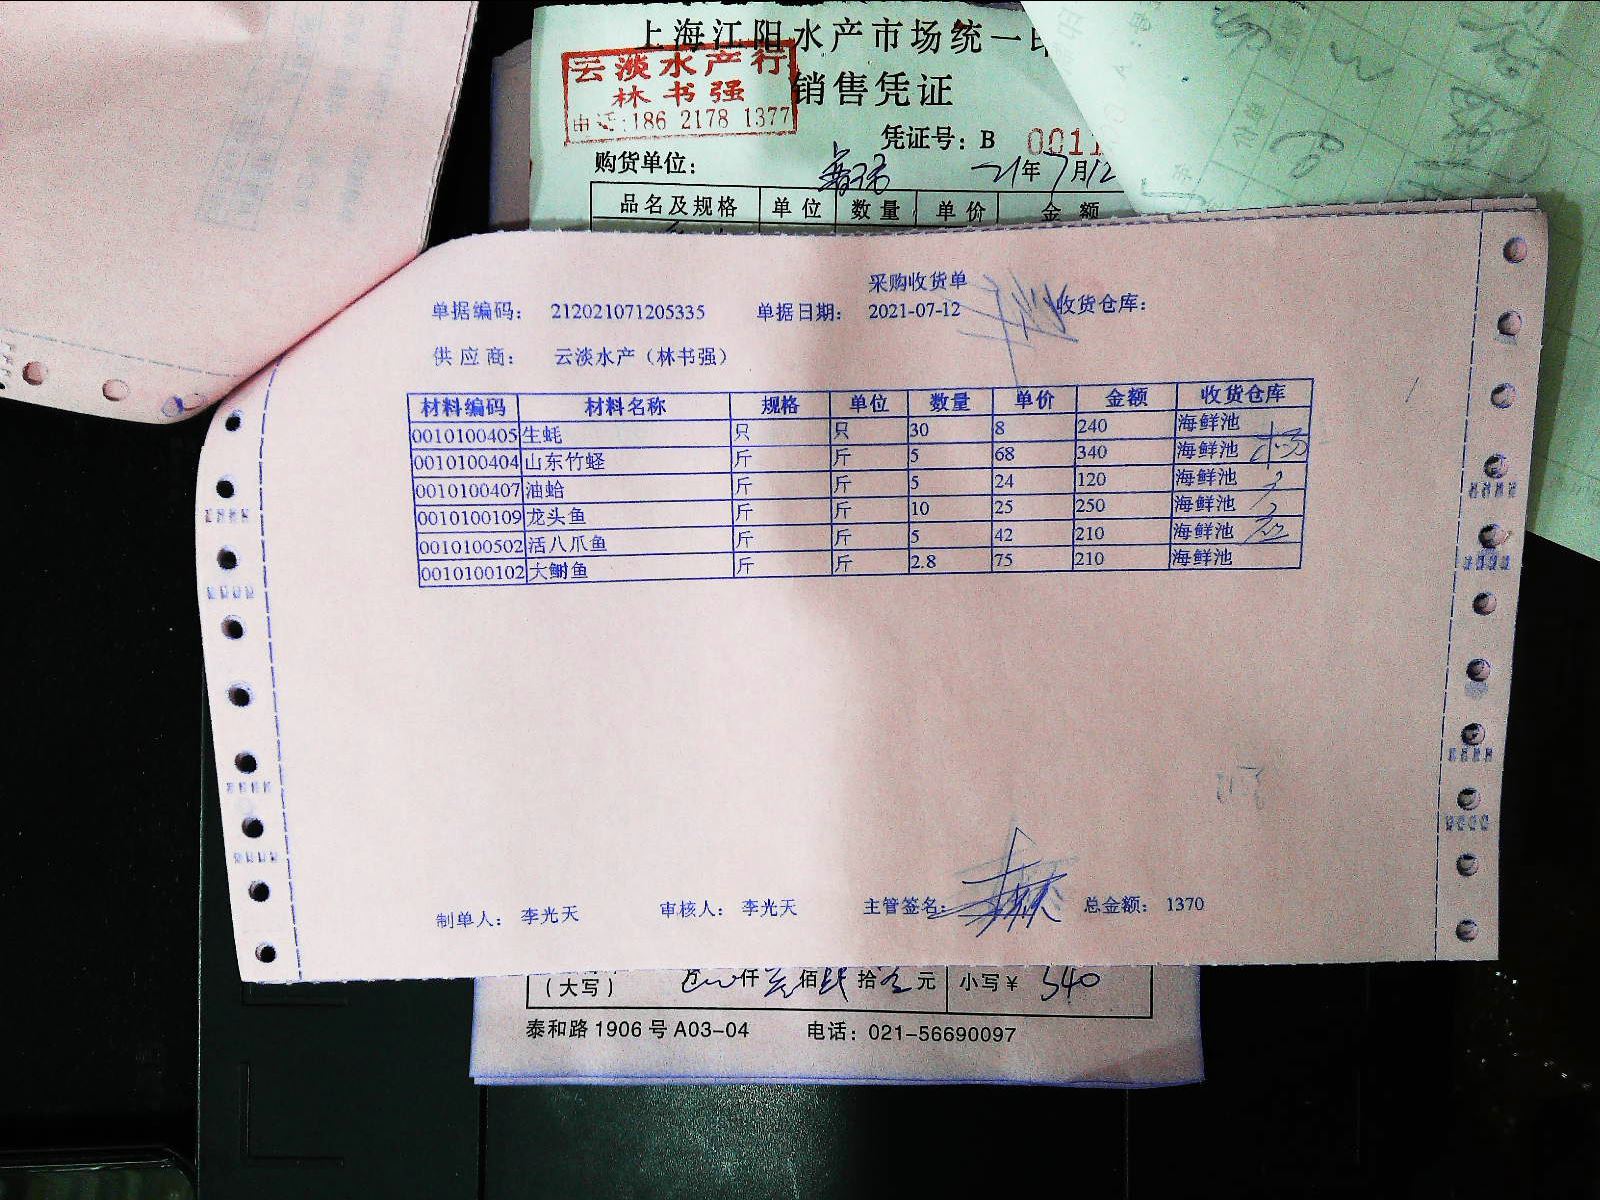 上海江阳水产市场统一
云淡水产行
林书强
电话:186 2178 1377
销售凭证
凭证号：B 0011
购货单位：
21年7月12
品名及规格 单位 数量 单价 金额
采购收货单
单据编码： 212021071205335 单据日期： 2021-07-12 收货仓库：
供应商： 云淡水产（林书强）
材料编码 材料名称 规格 单位 数量 单价 金额 收货仓库
0010100405 生蚝 只 只 30 8 240 海鲜池
0010100404 山东竹蛏 斤 斤 5 68 340 海鲜池
0010100407 油蛤 斤 斤 5 24 120 海鲜池
0010100109 龙头鱼 斤 斤 10 25 250 海鲜池
0010100502 活八爪鱼 斤 斤 5 42 210 海鲜池
0010100102 大鲥鱼 斤 斤 2.8 75 210 海鲜池
制单人： 李光天 审核人： 李光天 主管签名： 总金额： 1370
（大写） 万 仟 佰 拾 元 小写￥ 540
泰和路1906号A03-04 电话：021-56690097